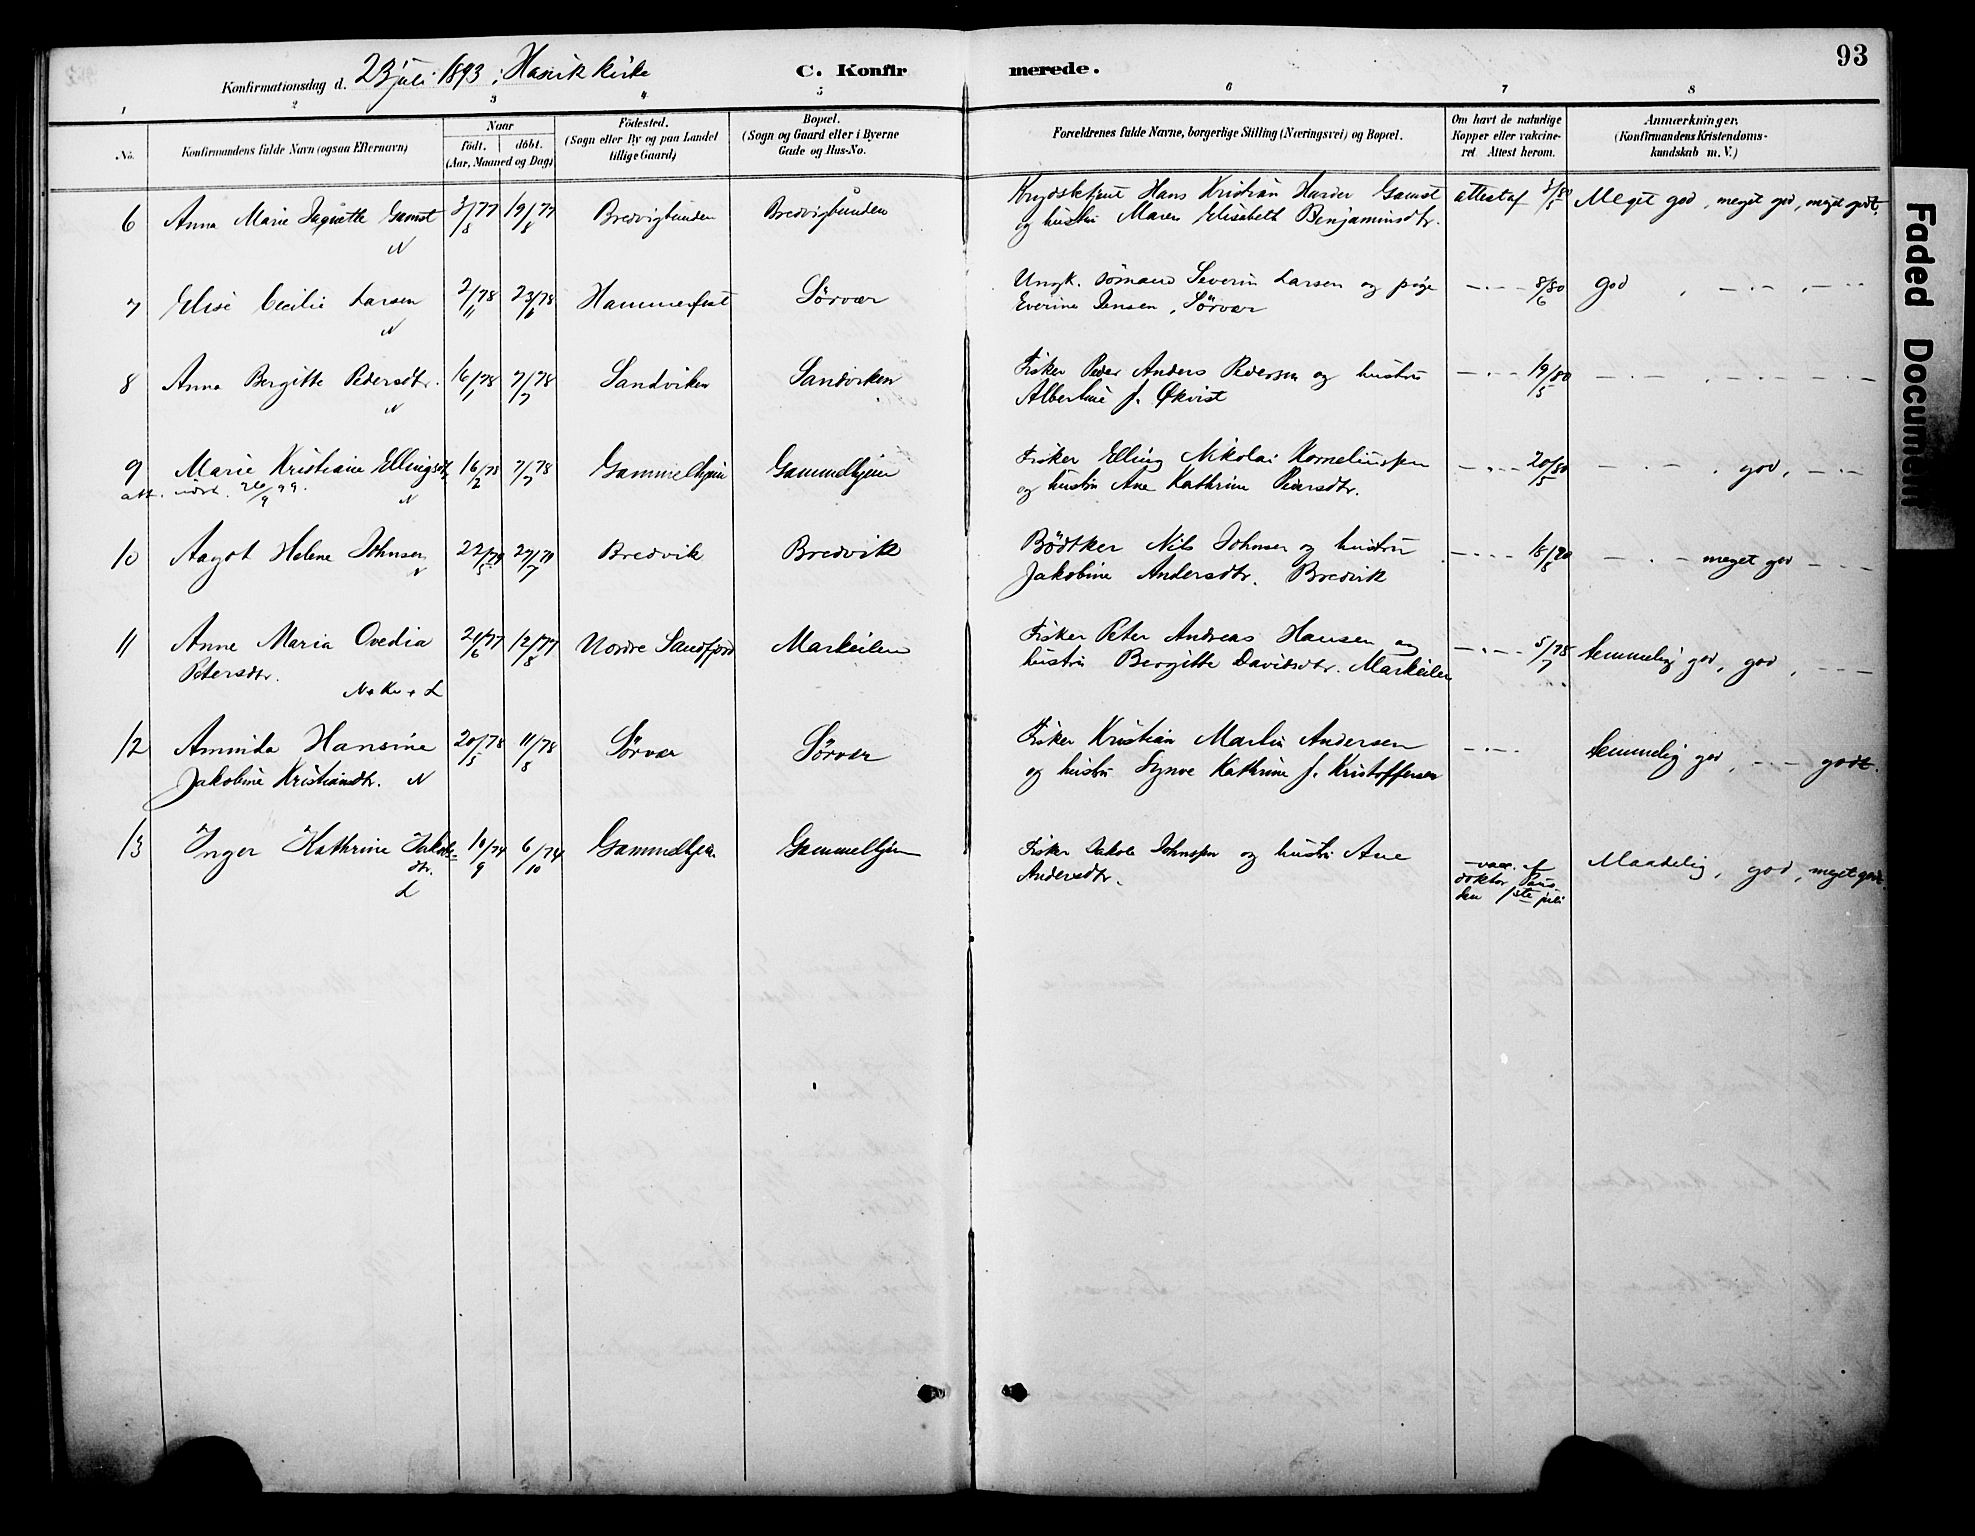 93
Konfirmationsdag d. 23 juli 1893 i Hasvik kirke
C. Konfirmerede.
1 2 3 4 5 6 7 8
No.
Konfirmandens fulde Navn (ogsaa Efternavn)
Naar
födt. döbt.
(Aar, Maaned og Dag)
Födested.
(Sogn eller By og paa Landet
tillige Gaard)
Bopæl.
(Sogn og Gaard eller i Byerne
Gade og Hus-No.
Forældrenes fulde Navne, borgerlige Stilling (Næringsvei) og Bopæl.
Om havt de naturlige
Kopper eller vakcine-
ret Attest herom.
Anmærkninger.
(Konfirmandens Kristendoms-
kundskab m. V.)
6 Anna Marie Gamst 3/8 77 19/8 77 Bredvigbunden Bredvigbunden Hans Kristian Harder Gamst attest af Meget god, meget god, meget godt.
N og hustru Maren Elisabeth Benjaminsdtr.
7 Elise Cecilie Larsen 2/11 78 23/6 78 Hammerfest Sørvær Ungk. sömand Severin Larsen og pige — . — 8/6 80 god , — . — , — . —
N Everine Jensen, Sörvær
8 Anna Bergitte Pedersdtr. 16/1 78 7/7 78 Sandviken Sandviken Fisker Peder Anders Pedersen og hustru — . — 19/5 80 — . — , — . — . — . —
N Albertine f. Økvist
9 Marie Kristiane Ellingsdtr. 16/2 78 7/7 78 Gammelhjem Gammelhjem Fisker Elling Nikolai Korneliussen — . — 20/5 80 — . — . god, — . —
att. udst. 26/9 99. N og hustru Ane Kathrine Pedersdtr.
10 Aagot Helene Johnsen 22/5 78 27/7 78 Bredvik Bredvik Bödtker Nils Johnsen og hustru — . — — . — meget god — . —
N Jakobine Andersdtr. Bredvik
11 Anne Maria Ovedia 12/8 77 Nordre Sandfjord Markeilen Fisker Peter Andreas Hansen og — . — 5/7 78 temmelig god, god, — . —
Petersdtr. hustru Bergitte Davidsdtr. Markeilen
N + Kv + L
12 Aminda Hansine 20/5 78 11/8 78 Sörvær Sörvær Fisker Kristian Martin Andersen — . — temmelig god, — . — godt.
Jakobine Kristiansdtr. N og hustru Synve Kathrine f. Kristoffersen
13 Inger Kathrine Jakobs- 10/9 74 6/10 74 Gammelhjem Gammelhjem Fisker Jakob Johnsen og hustru Ane vacc. af Maadelig, god, meget godt
dtr. Andersdtr. doktor
L den 1ste juli
Faded Document